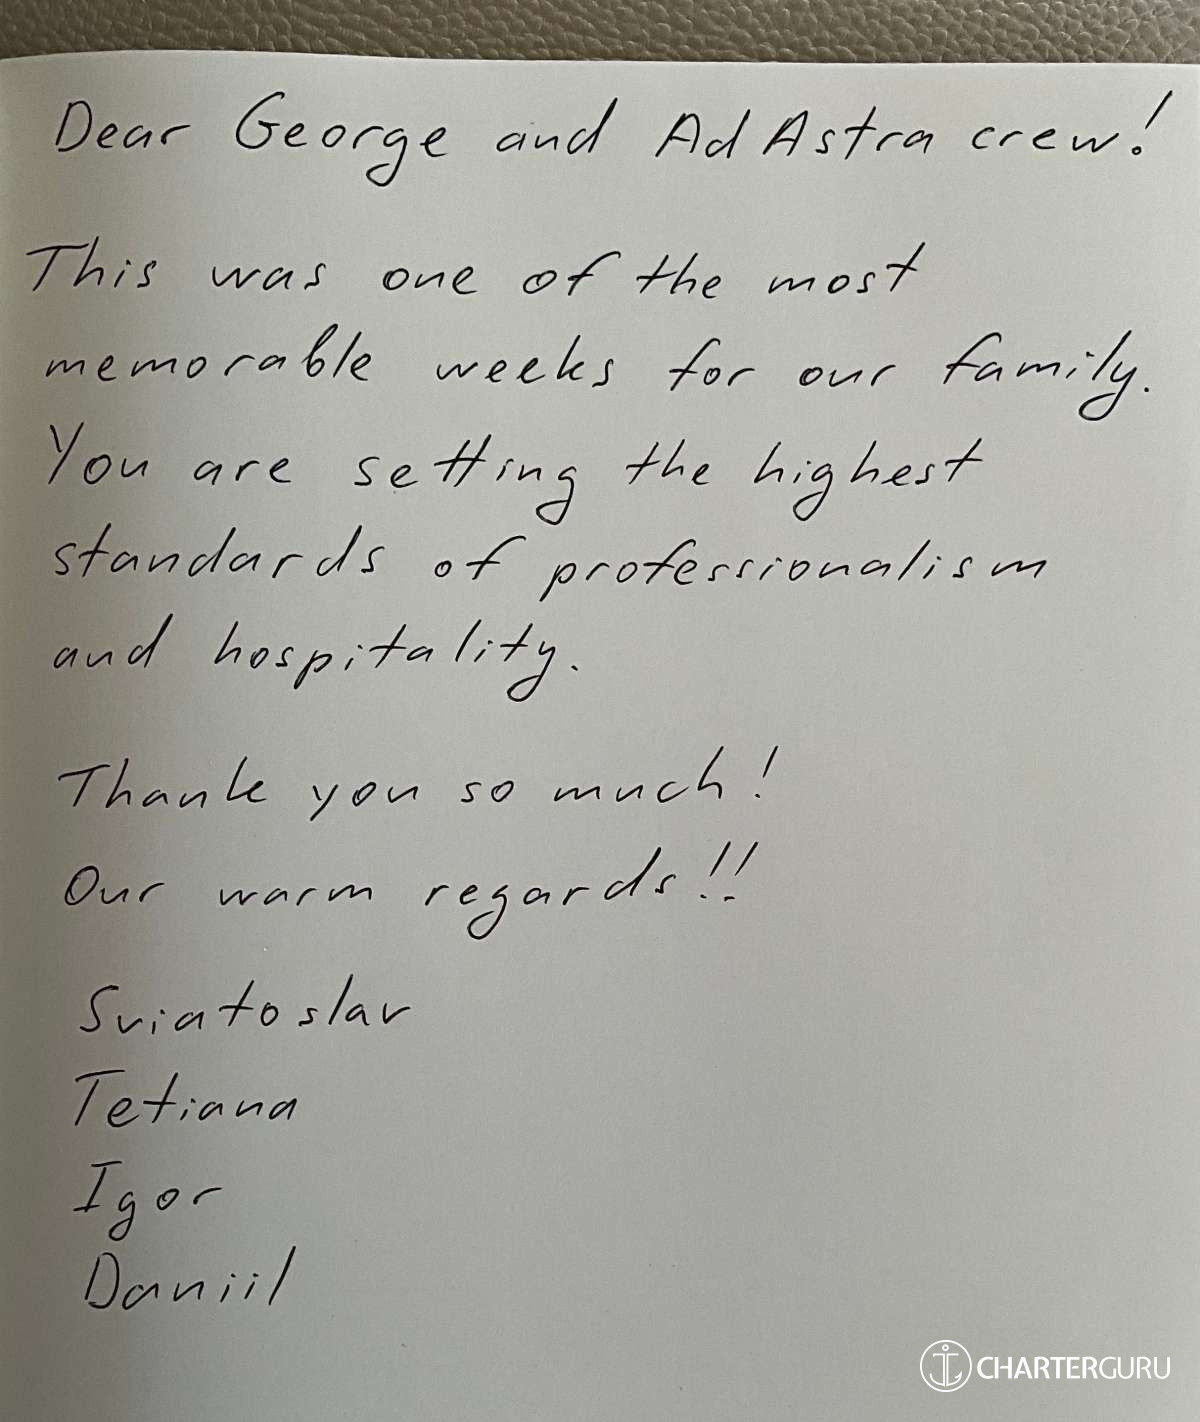 Dear George and Ad Astra crew!
This was one of the most
memorable weeks for our family.
You are setting the highest
standards of professionalism
and hospitality.
Thank you so much!
Our warm regards!!
Sviatoslav
Tetiana
Igor
Daniil
CHARTERGURU